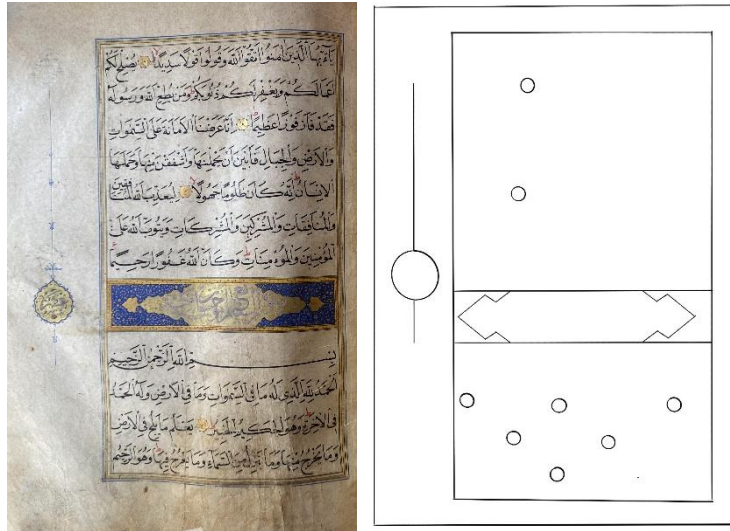 يَآءَيُّهَا الَّذِينَ اٰمَنُوا اتَّقُوا اللّٰهَ وَقُولُوا قَوْلًا سَدِيدًا يُصْلِحْ لَكُمْ
اَعْمَالَكُمْ وَيَغْفِرْ لَكُمْ ذُنُوبَكُمْ وَمَنْ يُطِعِ اللّٰهَ وَرَسُولَهُ
فَقَدْ فَازَ فَوْزًا عَظِيمًا اِنَّا عَرَضْنَا الْاَمَانَةَ عَلَى السَّمٰوَاتِ
وَالْاَرْضِ وَالْجِبَالِ فَاَبَيْنَ اَنْ يَحْمِلْنَهَا وَاَشْفَقْنَ مِنْهَا وَحَمَلَهَا
الْاِنْسَانُ اِنَّهُ كَانَ ظَلُومًا جَهُولًا لِيُعَذِّبَ اللّٰهُ الْمُنَافِقِينَ
وَالْمُنَافِقَاتِ وَالْمُشْرِكِينَ وَالْمُشْرِكَاتِ وَيَتُوبَ اللّٰهُ عَلَى
الْمُؤْمِنِينَ وَالْمُؤْمِنَاتِ وَكَانَ اللّٰهُ غَفُورًا رَحِيمًا
بِسْمِ اللّٰهِ الرَّحْمٰنِ الرَّحِيمِ
اَلْحَمْدُ لِلّٰهِ الَّذِي لَهُ مَا فِي السَّمٰوَاتِ وَمَا فِي الْاَرْضِ وَلَهُ الْحَمْدُ
فِي الْاٰخِرَةِ وَهُوَ الْحَكِيمُ الْخَبِيرُ يَعْلَمُ مَا يَلِجُ فِي الْاَرْضِ
وَمَا يَخْرُجُ مِنْهَا وَمَا يَنْزِلُ مِنَ السَّمَاءِ وَمَا يَعْرُجُ فِيهَا وَهُوَ الرَّحِيمُ